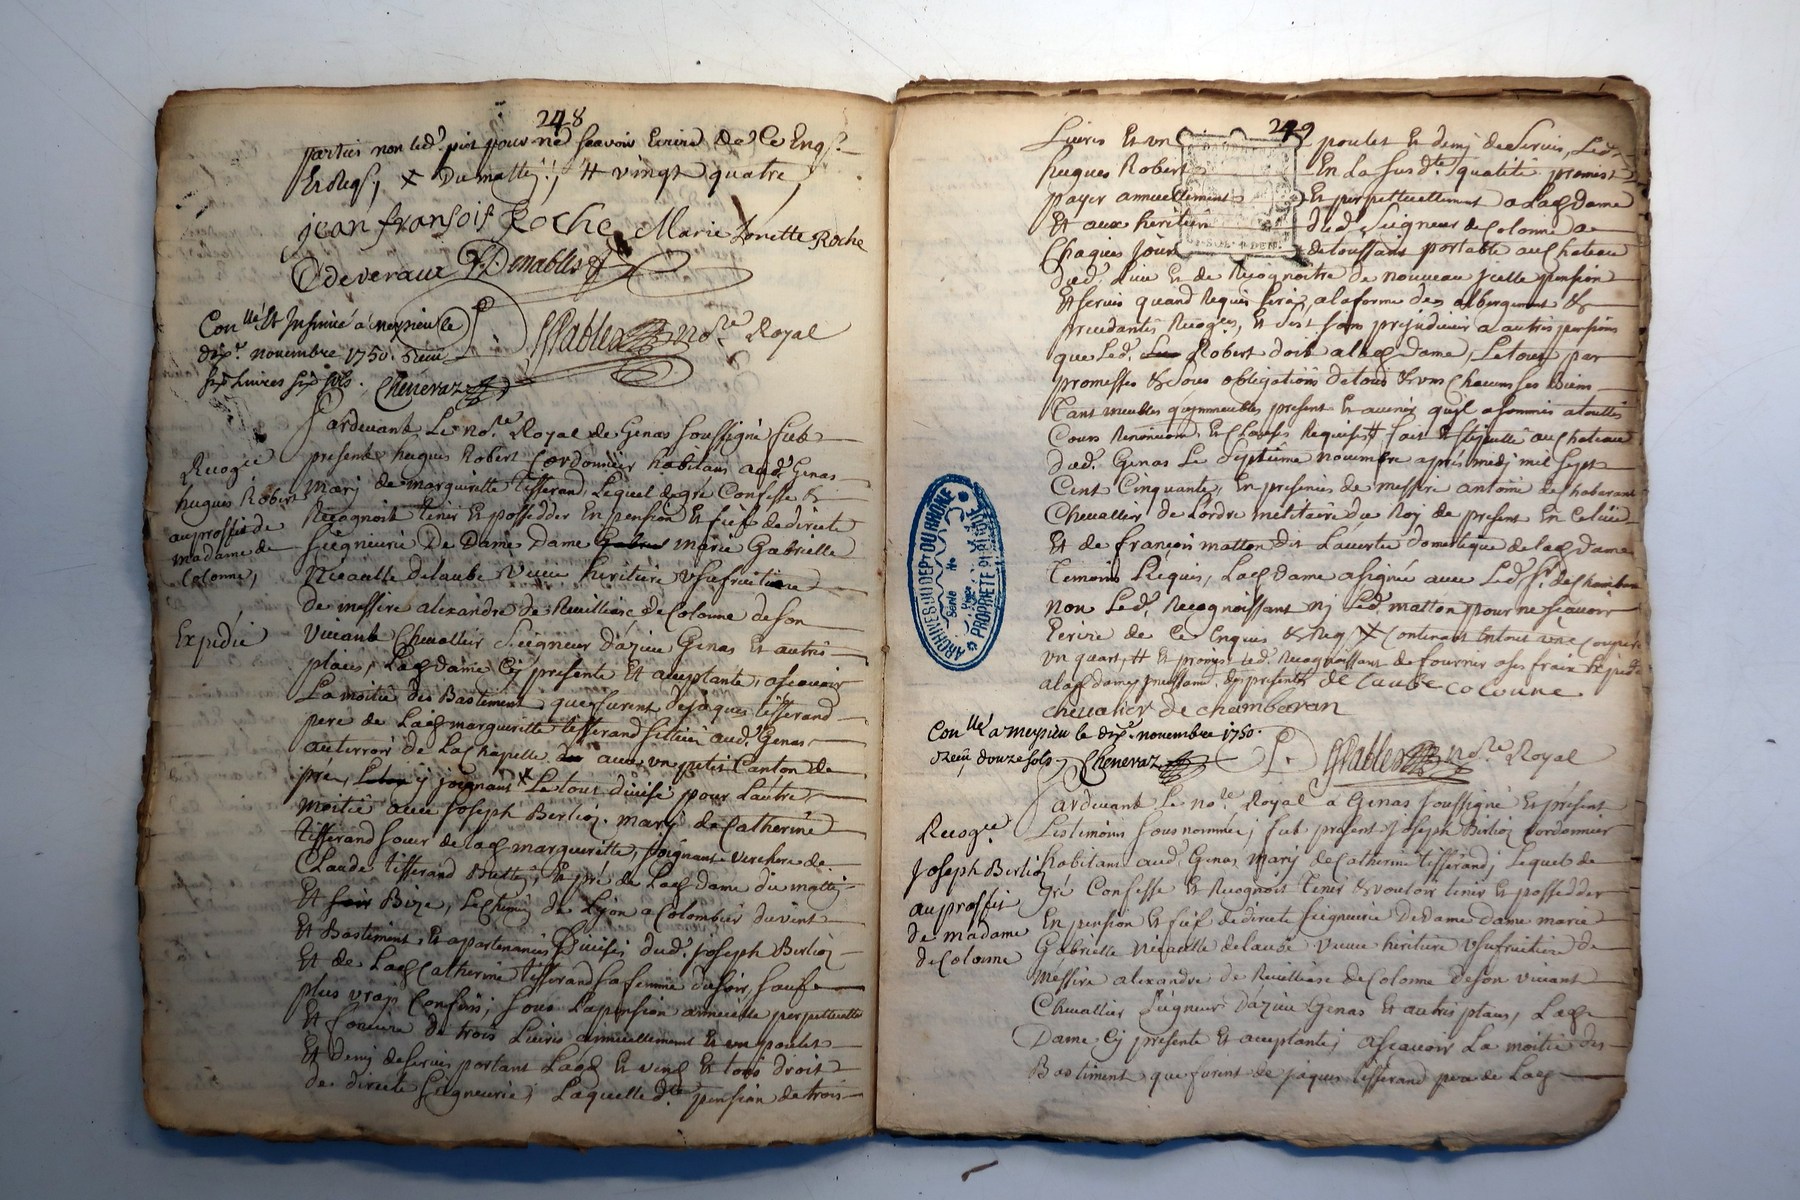 248
parties non led. pnt pour ne sçavoir Ecrire de Ce Enq.
Et Req., x du matty; # vingt quatre,
jean fransois Roche Marie Zonette Roche
Odeveraux D. Venables
Con.llé Et Insinué à meysieu le
dix.e novembre 1750. Reçu
six Livres six sols. Chenevaz
Pables no.re Royal
Pardevant Le no.re Royal de Genas soussigné fut
présent hugues Robert Cordonnier habitant aud. Genas
mary de margueritte tisserand, Lequel de gré Confesse &
Recognoit tenir Et possedder En pension Et fief de directe
seigneurie De Dame Dame marie Gabrielle
de Laube Veuve heritiere Usufruitiere
de messire alexandre de Colonne de son
vivant Chevallier Seigneur d'azieu Genas Et autres
places, Lad. Dame Cy presente Et acceptante, asçavoir
La moitié des Bastiment quey furent de jaques tisserand
pere de Lad. margueritte tisserand scitués aud. Genas
au terroir de La Chapelle avec un petit Canton de
pré, y joignant x Le tout divisé pour L'autre
moitié avec Joseph Berlioz mary de Catherine
tisserand soeur de Lad. marguerritte, joignant verchere de
Claude tisserand Et pré de Lad. Dame du matty
Et Bize, Le Chemin de Lyon a Colombier du vent
Et Bastiment Et apartenances Divisés dud. Joseph Berlioz
Et de Lad. Catherine tisserand sa femme du soir, sauf
plus vrays Confins, sous La pension annuelle perpetuelle
Et fonciere de trois Livres annuellement Et un poulet
Et demy de servis portant Lods Et vends Et tous droit
de directe seigneurie, Laquelle d.te pension de trois
Recog.ce
hugues Robert
au proffit de
madame de
Colonne,
Expedié
249
Livres Et un poulet Et demy de Servis, Led.
hugues Robert En La susd.te qualité promet
payer annuellement Et perpetuellement a Lad. Dame
Et aux heritiers dud. Seigneur de Colonne a
Chaques Jour de toussaint portable au Chateau
dud. Lieu Et de Recognoitre de nouveau Icelle pension
Et servis quand Requis sera, a la forme des albergement &
precedantes Recog.ces, Et C'est sans prejudicier a autres pensions
que Led. Robert doit a Lad. Dame, Le tout par
promesses & sous obligations de tous & uns Chacuns ses Biens
Tant meubles qu'immeubles present Et avenir qu'il a soummis a toutes
Cours Renonciation, Et Clauses Requises # fait Et stipullé au chateau
dud. Genas Le septième novembre après midy mil sept
Cent Cinquante, En presences de messire antoine de Chabarant
Chevallier de L'ordre militaire du Roy de present En Celieu
Et de françois matton dit Laverte domestique de Lad. Dame
Temoins Requis, Lad. Dame a signée avec Led. S.r de Chambaran
non Led. Recognoissant ny Led. matton pour ne scavoir
Ecrire de Ce Enquis & Req. x Contenant En tout une Couperée
un quart, # Et promis Led. Recognoissant de fournir a ses fraix Expedié
a Lad. Dame des presentes de Laube colonne
chevalier de chambaran
Con.llé a Meysieu le dix.e novembre 1750.
Reçu, douze sols, Chenevaz
Pables no.re Royal
Pardevant Le no.re Royal a Genas soussigné Et présent
Les temoins sous nommés; fut present Joseph Berlioz Cordonnier
habitant aud. Genas mary de Catherine tisserand; Lequel de
gré Confesse Et Recognoit tenir & vouloir tenir Et possedder
En pension Et fief de directe seigneurie De Dame Dame marie
Gabrielle de Laube veuve heritiere Usufruitiere de
Messire alexandre de Colonne de son vivant
Chevallier Seigneur d'azieu Genas Et autres places, Lad.
Dame Cy présente Et acceptante; asçavoir La moitié des
Bastiment que furent de jaques tisserand pere de Lad.
Recog.ce
Joseph Berlioz
au proffit
de madame
de Colonne
ARCHIVES DU DEPT DU RHONE
Série
PROPRIETE PUBLIQUE